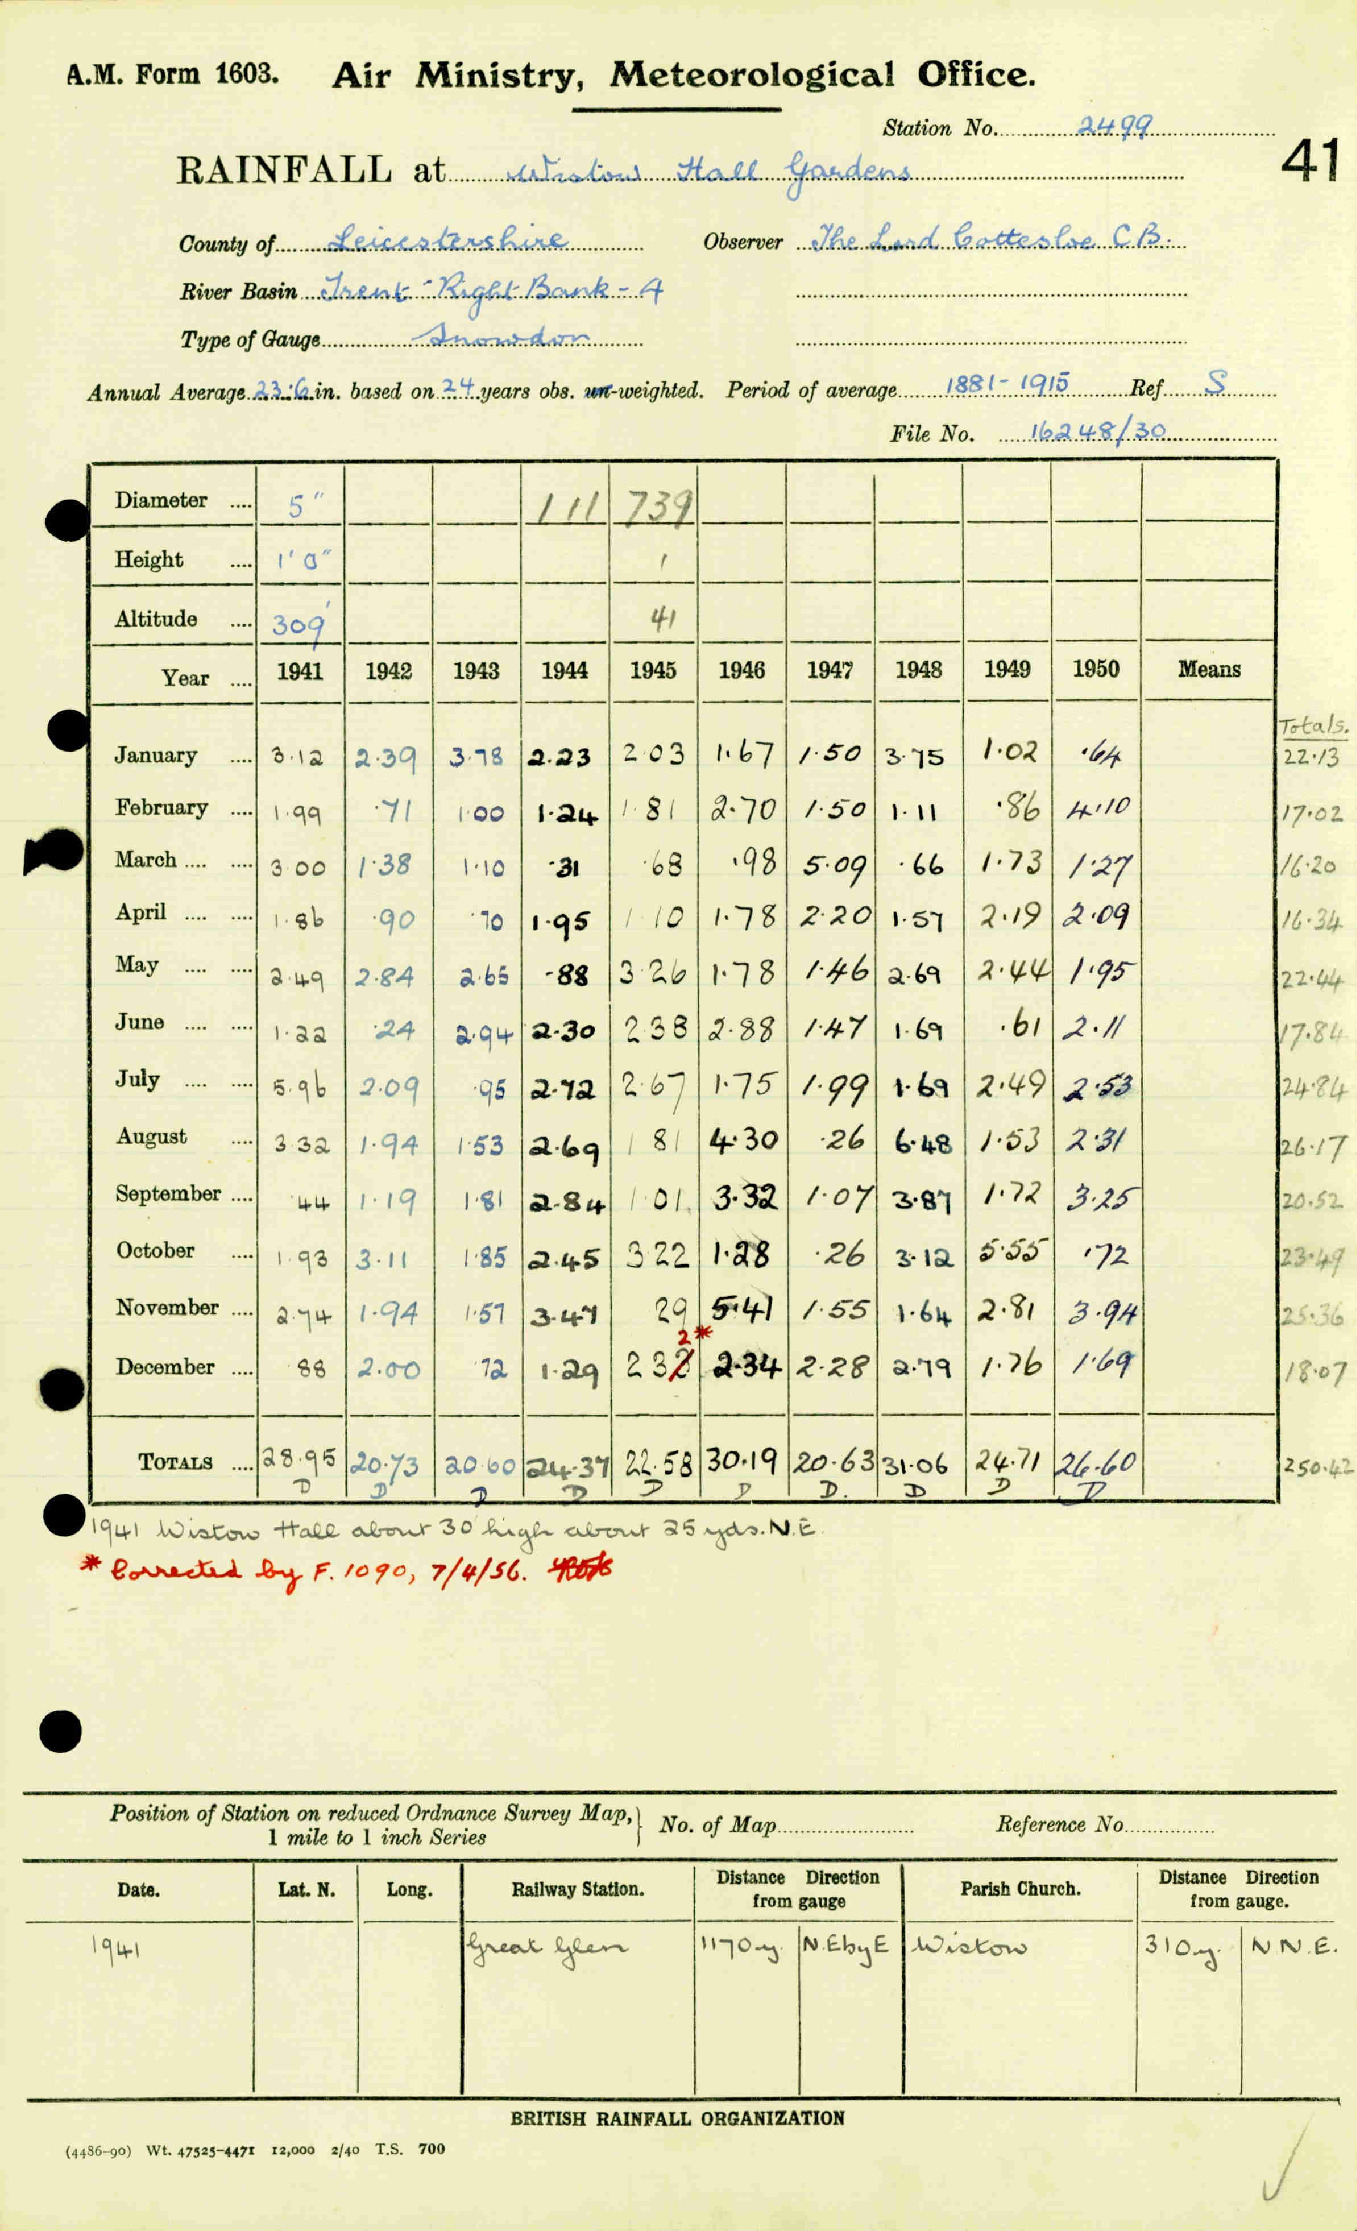 A.M. Form 1603. Air Ministry, Meteorological Office.
Station No. 2499
41
RAINFALL at Wistow Hall Gardens
County of Leicestershire Observer The Lord Cottesloe C.B.
River Basin Trent - Right Bank - 4
Type of Gauge Snowdon
Annual Average 23.6 in. based on 24 years obs. un-weighted. Period of average 1881-1915 Ref S
File No. 16248/30
Diameter .... 5" 111 739
Height .... 1' 0" 1
Altitude .... 309' 41
Year .... 1941 1942 1943 1944 1945 1946 1947 1948 1949 1950 Means
Totals.
January .... 3.12 2.39 3.78 2.23 2 03 1.67 1.50 3.75 1.02 .64 22.13
February .... 1.99 .71 1.00 1.24 1 81 2.70 1.50 1.11 .86 4.10 17.02
March .... .... 3.00 1.38 1.10 .31 .68 .98 5.09 .66 1.73 1.27 16.20
April .... .... 1.86 .90 .70 1.95 1 10 1.78 2.20 1.57 2.19 2.09 16.34
May .... .... 2.49 2.84 2.65 .88 3 26 1.78 1.46 2.69 2.44 1.95 22.44
June .... .... 1.22 .24 2.94 2.30 2 38 2.88 1.47 1.69 .61 2.11 17.84
July .... .... 5.96 2.09 .95 2.72 2 67 1.75 1.99 1.69 2.49 2.53 24.84
August .... 3.32 1.94 1.53 2.69 1 81 4.30 .26 6.48 1.53 2.31 26.17
September .... .44 1.19 1.81 2.84 1 01 3.32 1.07 3.87 1.72 3.25 20.52
October .... 1.93 3.11 1.85 2.45 3 22 1.28 .26 3.12 5.55 .72 23.49
November .... 2.74 1.94 1.57 3.47 29 5.41 1.55 1.64 2.81 3.94 25.36
2*
December .... 88 2.00 .72 1.29 2 33 2.34 2.28 2.79 1.76 1.69 18.07
TOTALS .... 28.95 20.73 20.60 24.37 22.58 30.19 20.63 31.06 24.71 26.60 250.42
D D D D D D D. D D D
1941 Wistow Hall about 30' high about 25 yds. N.E.
* Corrected by F. 1090, 7/4/56.
Position of Station on reduced Ordnance Survey Map,
1 mile to 1 inch Series
No. of Map Reference No.
Date. Lat. N. Long. Railway Station. Distance Direction from gauge Parish Church. Distance Direction from gauge.
1941 Great Glen 1170 y. N.E by E Wistow 310 y. N.N.E.
BRITISH RAINFALL ORGANIZATION
(4486-90) Wt. 47525-4471 12,000 2/40 T.S. 700